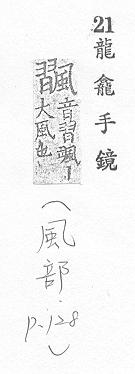 21龍龕手鏡
飁音習颯丨
大風也
(風部.p.128)